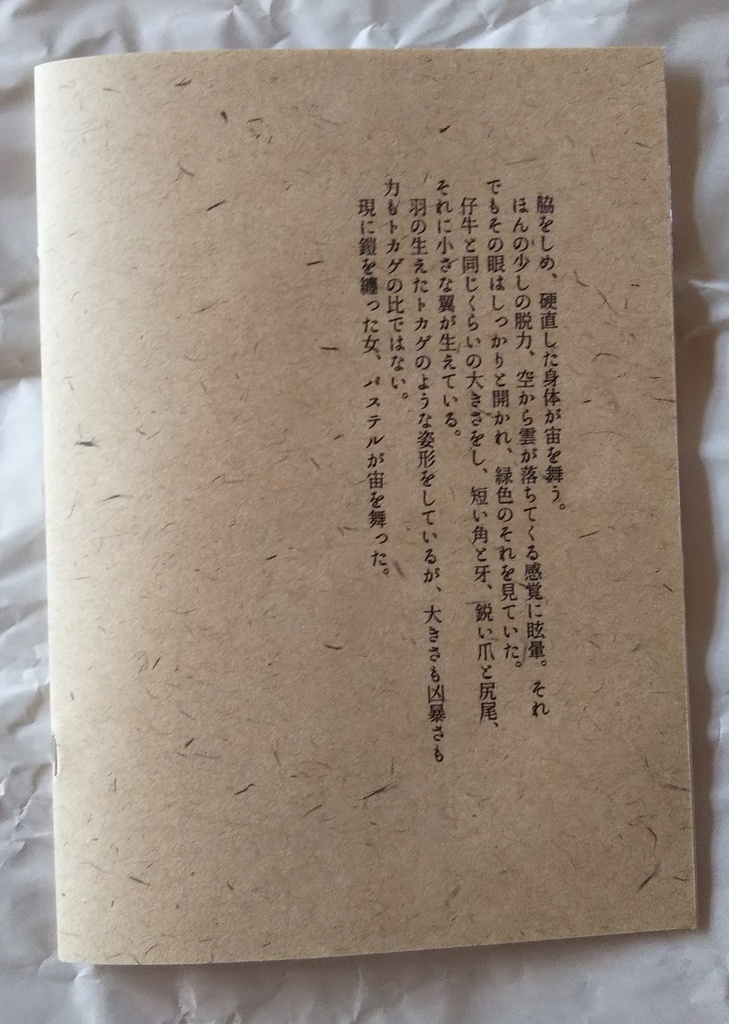 脇をしめ、硬直した身体が宙を舞う。
ほんの少しの脱力、空から雲が落ちてくる感覚に眩暈。それ
でもその眼はしっかりと開かれ、緑色のそれを見ていた。
仔牛と同じくらいの大きさをし、短い角と牙、鋭い爪と尻尾、
それに小さな翼が生えている。
羽の生えたトカゲのような姿形をしているが、大きさも凶暴さも
力もトカゲの比ではない。
現に鎧を纏った女、パステルが宙を舞った。